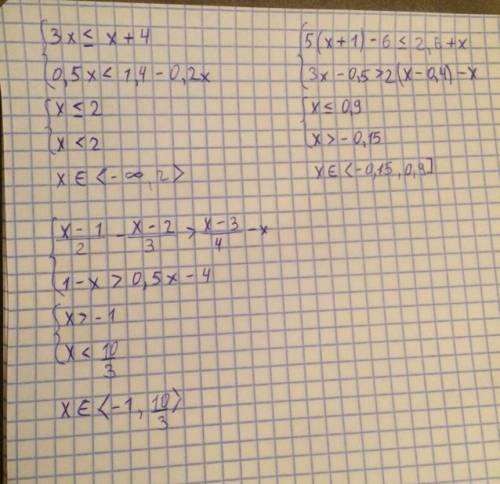 3x ≤ x + 4
0,5x < 1,4 - 0,2x
x ≤ 2
x < 2
x ∈ <-∞, 2>
5(x+1) - 6 ≤ 2,6 + x
3x - 0,5 > 2(x - 0,4) - x
x ≤ 0,9
x > - 0,15
x ∈ <-0,15, 0,9]
(x - 1)/2 - (x - 2)/3 > (x - 3)/4 - x
1 - x > 0,5x - 4
x > - 1
x < 10/3
x ∈ <-1, 10/3>